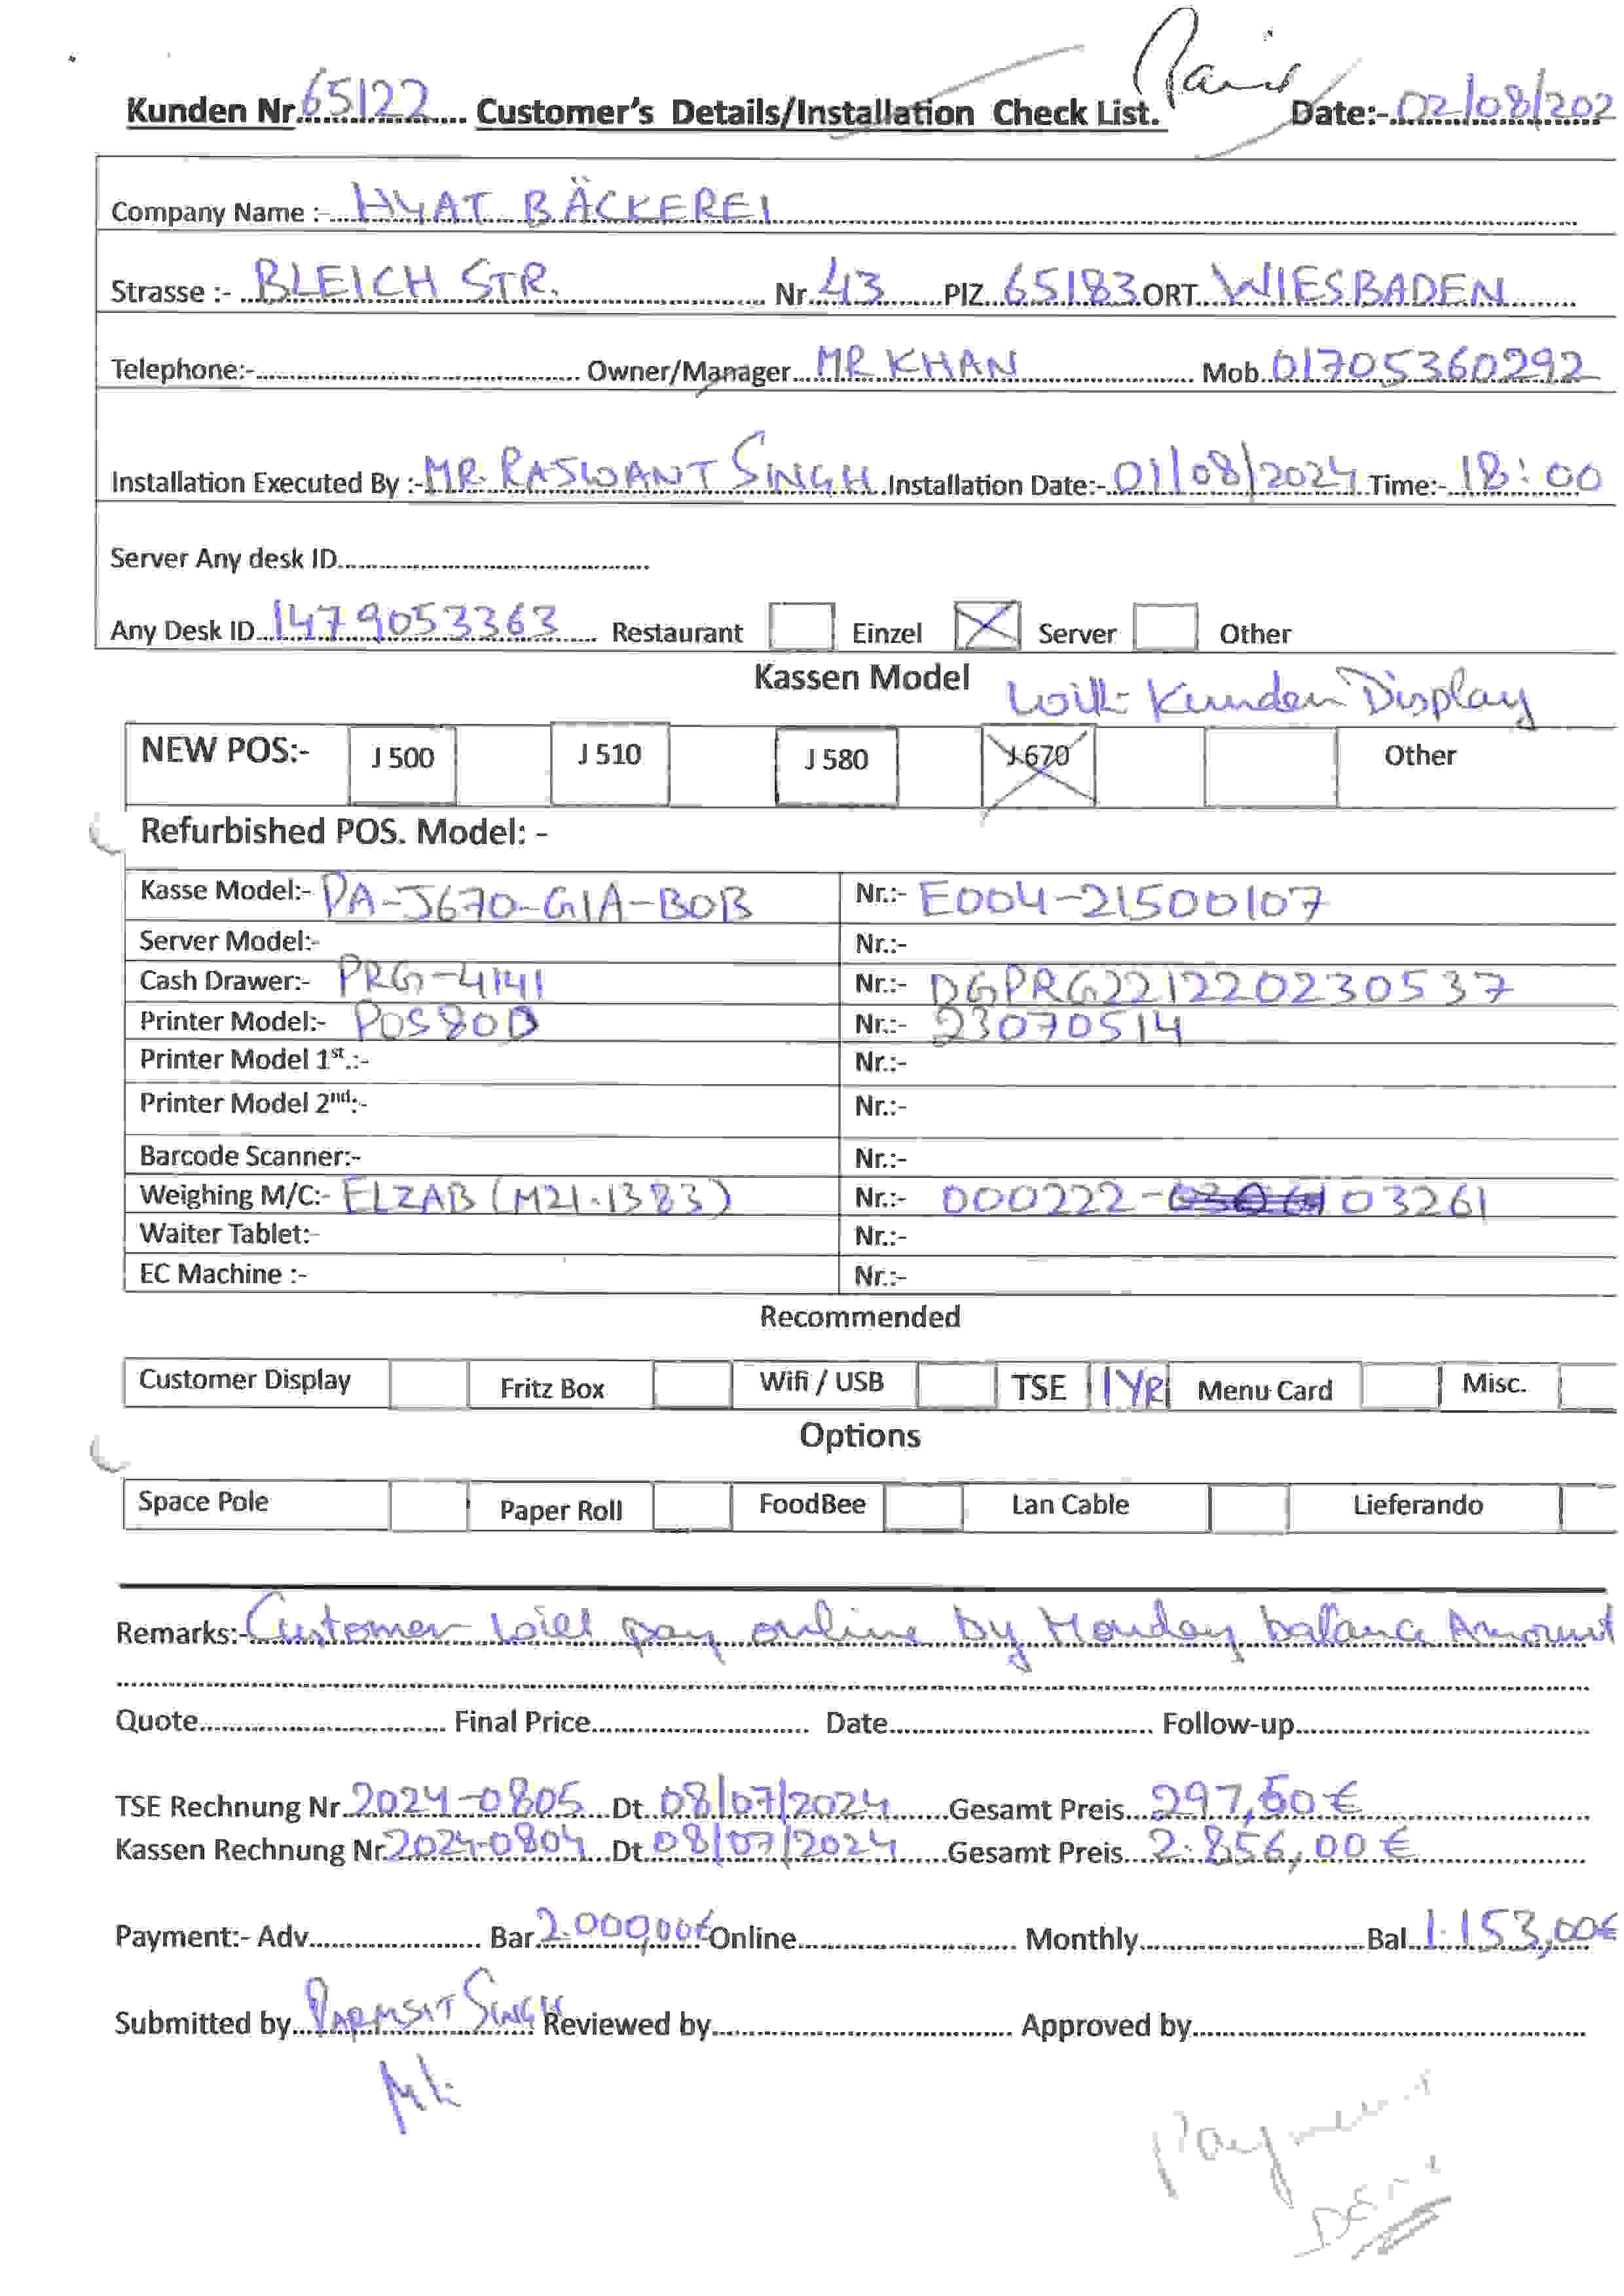 Paid
Kunden Nr. 65122 Customer's Details/Installation Check List. Date:- 02/08/202
Company Name :- HYAT BÄCKEREI
Strasse :- BLEICH STR. Nr. 43 PlZ. 65183 ORT. WIESBADEN
Telephone:- Owner/Manager MR KHAN Mob. 01705360292
Installation Executed By :- MR. RASWANT SINGH Installation Date:- 01/08/2024 Time:- 18:00
Server Any desk ID
Any Desk ID 1479053363 Restaurant Einzel Server Other
Kassen Model
With Kunden Display
NEW POS:- J 500 J 510 J 580 J 670 Other
Refurbished POS. Model: -
Kasse Model:- PA-J670-G1A-BOB Nr.:- E004-21500107
Server Model:- Nr.:-
Cash Drawer:- PRG-4141 Nr.:- DGPRG221220230537
Printer Model:- POS80D Nr.:- 23070514
Printer Model 1st.:- Nr.:-
Printer Model 2nd:- Nr.:-
Barcode Scanner:- Nr.:-
Weighing M/C:- ELZAB (M21-1383) Nr.:- 000222- 03261
Waiter Tablet:- Nr.:-
EC Machine :- Nr.:-
Recommended
Customer Display Fritz Box Wifi / USB TSE 1YR Menu Card Misc.
Options
Space Pole Paper Roll FoodBee Lan Cable Lieferando
Remarks:- Customer will pay online by Monday balance Amount
Quote Final Price Date Follow-up
TSE Rechnung Nr. 2024-0805 Dt. 08/07/2024 Gesamt Preis 297,50 €
Kassen Rechnung Nr. 2024-0804 Dt. 08/07/2024 Gesamt Preis 2.856,00 €
Payment:- Adv. Bar. 2.000,00€ Online Monthly Bal. 1.153,00€
Submitted by PARMJIT SINGH Reviewed by Approved by
Payment
Done